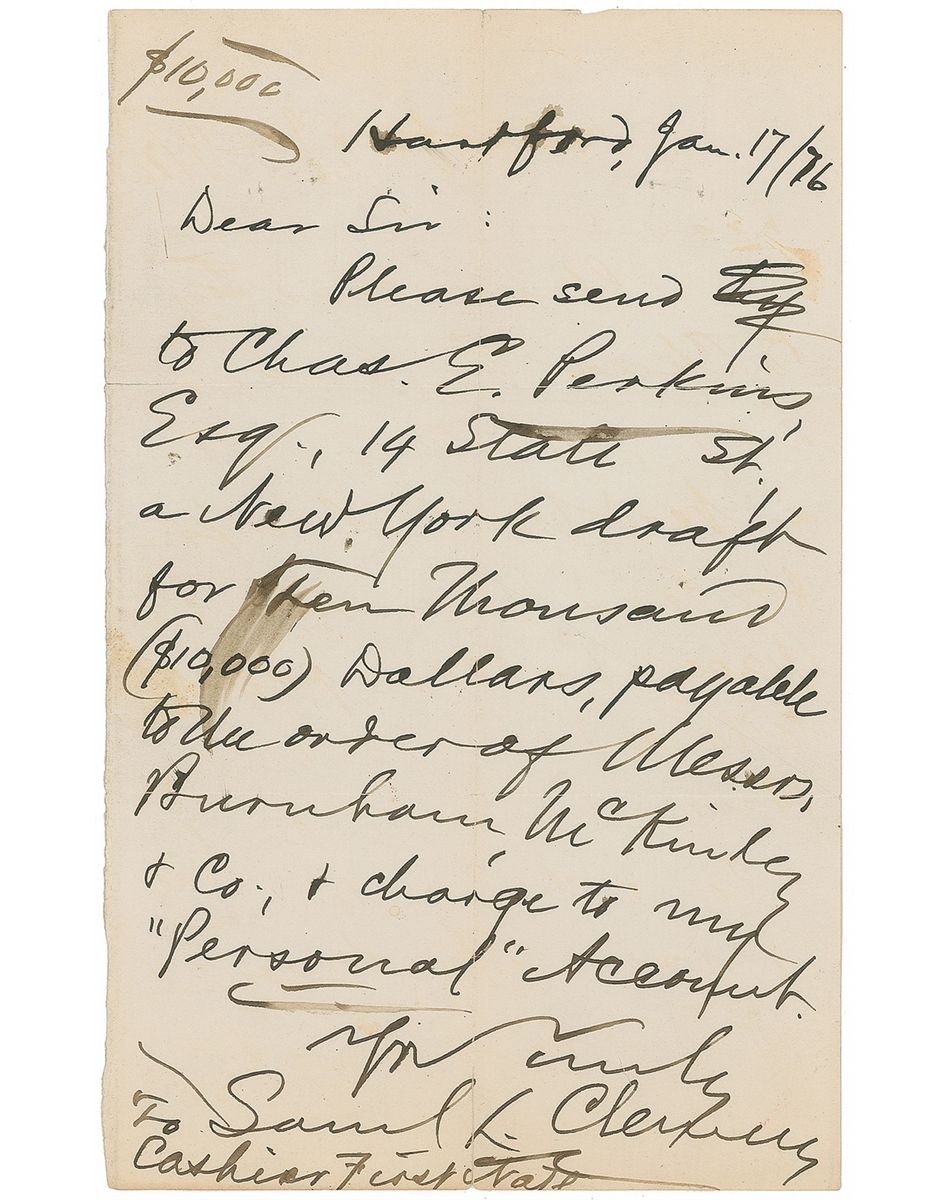 $10,000
Hartford, Jan. 17/76
Dear Sir:
Please send
to Chas. E. Perkins,
Esq., 14 State St.,
a New York draft
for ten Thousand
($10,000) Dollars, payable
to the order of Messrs.
Burnham, McKinley
& Co., & charge to my
"Personal" Account.
Yrs Truly
Saml L. Clemens
To
Cashier First Natl